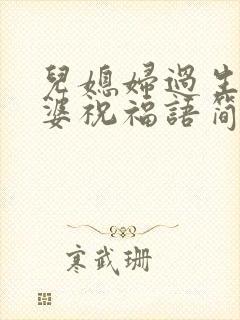 兒媳婦過生
婆祝福語簡
寒武珊